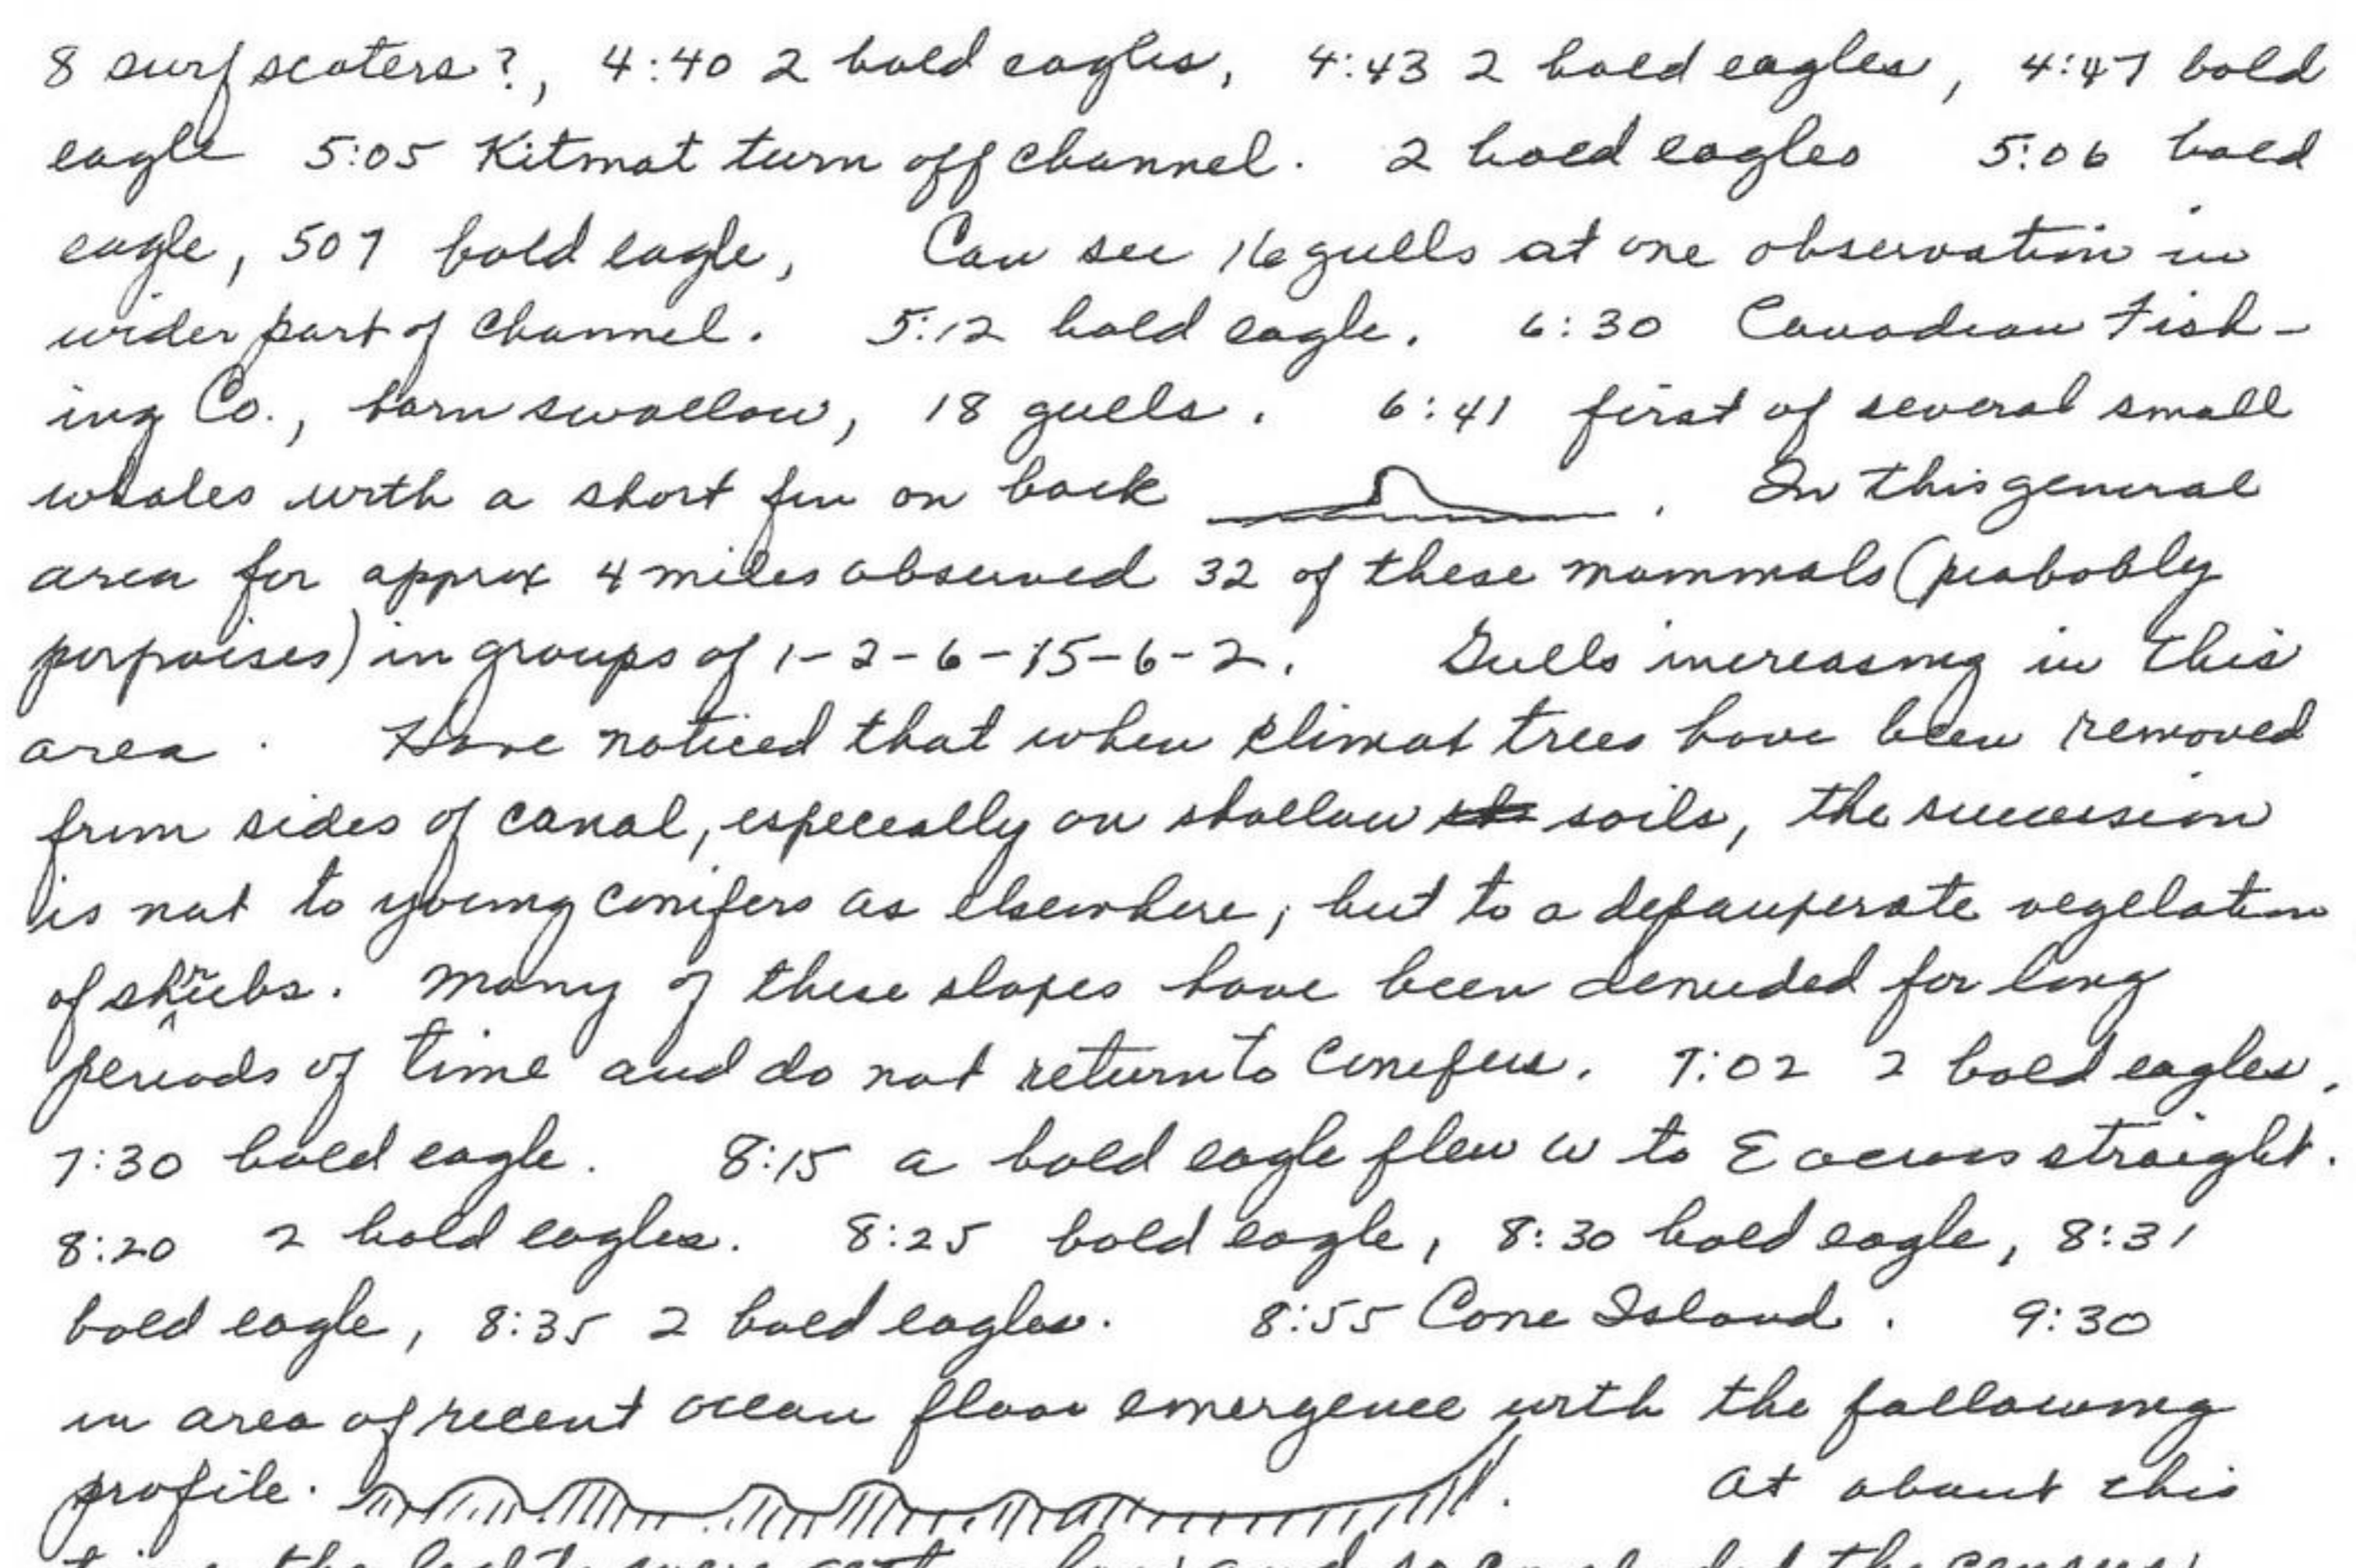 8 surf scoters?, 4:40 2 bald eagles, 4:43 2 bald eagles, 4:47 bald
eagle 5:05 Kitmat turn off channel. 2 bald eagles 5:06 bald
eagle, 507 bald eagle, Can see 16 gulls at one observation in
wider part of channel. 5:12 bald eagle. 6:30 Canadian Fish-
ing Co., barn swallow, 18 gulls. 6:41 first of several small
whales with a short fin on back . In this general
area for approx 4 miles observed 32 of these mammals (probably
porpoises) in groups of 1-2-6-15-6-2. Gulls increasing in this
area. Have noticed that when climat trees have been removed
from sides of canal, especially on shallow soils, the succession
is not to young conifers as elsewhere, but to a depauperate vegetation
of shrubs. Many of these slopes have been denuded for long
periods of time and do not return to conifers. 7:02 2 bald eagles.
7:30 bald eagle. 8:15 a bald eagle flew W to E across straight.
8:20 2 bald eagles. 8:25 bald eagle, 8:30 bald eagle, 8:31
bald eagle, 8:35 2 bald eagles. 8:55 Cone Island. 9:30
in area of recent ocean floor emergence with the following
profile. . At about this